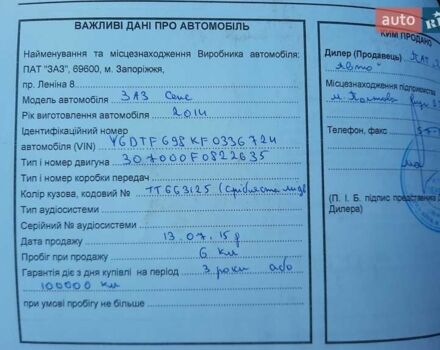 ВАЖЛИВІ ДАНІ ПРО АВТОМОБІЛЬ
Найменування та місцезнаходження Виробника автомобіля:
ПАТ "ЗАЗ", 69600, м. Запоріжжя,
пр. Леніна 8
Модель автомобіля ЗАЗ Сенс
Рік виготовлення автомобіля 2014
Ідентифікаційний номер
автомобіля (VIN) Y6DTF698KF0336724
Тип і номер двигуна 307000F0822635
Тип і номер коробки передач
Колір кузова, кодовий № TT663125 (срібляста
Тип аудіосистеми
Серійний № аудіосистеми
Дата продажу 13.07.15р
Пробіг при продажу 6 км
Гарантія діє з дня купівлі на період 3 роки або
100000 км
при умові пробігу не більше
auto
КИМ ПРОДАНО
Дилер (Продавець) ПАТ
Авто"
Місцезнаходження
м. Полтава
Телефон, факс
(П. І. Б. підпис
Дилера)